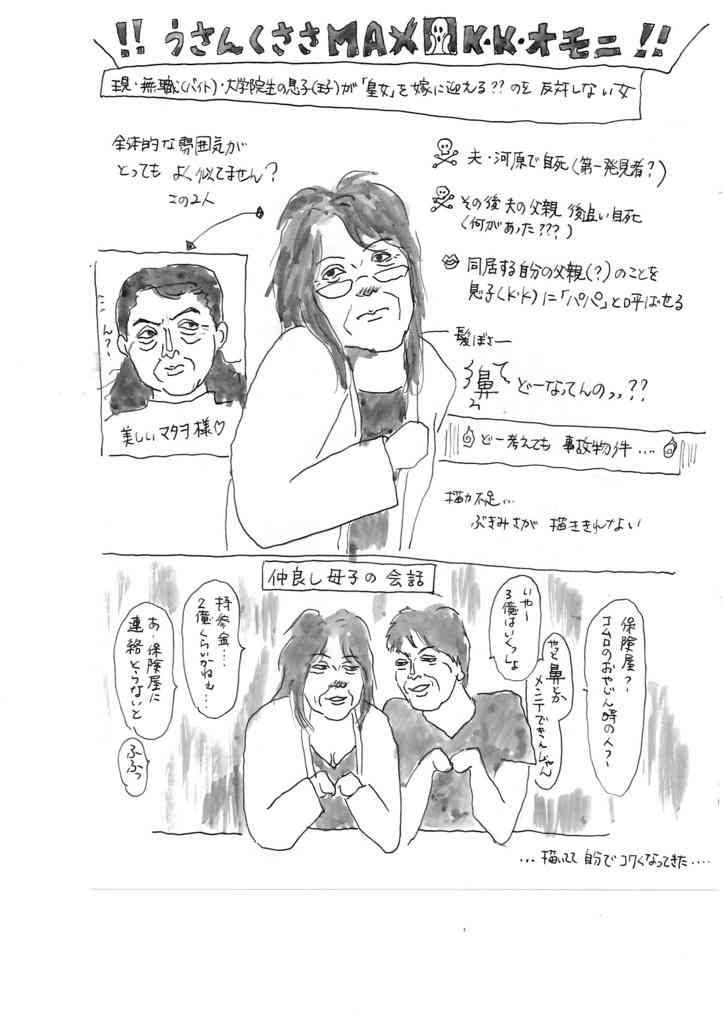 !! うさんくささMAX K・K・オモニ !!
現・無職(バイト)・大学院生の息子(王子)が「皇女」を嫁に迎える??のを反対しない女
全体的な雰囲気が
とっても よく似てません?
この2人
夫・河原で自死(第一発見者?)
その後 夫の父親 後追い自死
(何があった???)
同居する自分の父親(?)のことを
息子(K・K)に「パパ」と呼ばせる
ん?〜
美しいマタヨ様♡
髪ぼさー
鼻て
どーなってんのッッ??
どー考えても 事故物件…。
描力不足…
ぶきみさが 描ききれない
仲良し母子の会話
保険屋?〜
コムロのおやじん時の人?〜
やっと鼻とか
メンテできんじゃん
いや〜
3億はいくっしょ
持参金…
2億くらいかねぇ…
あ、保険屋に
連絡とらないと
ふふっ
…描いてて 自分で コワくなってきた….